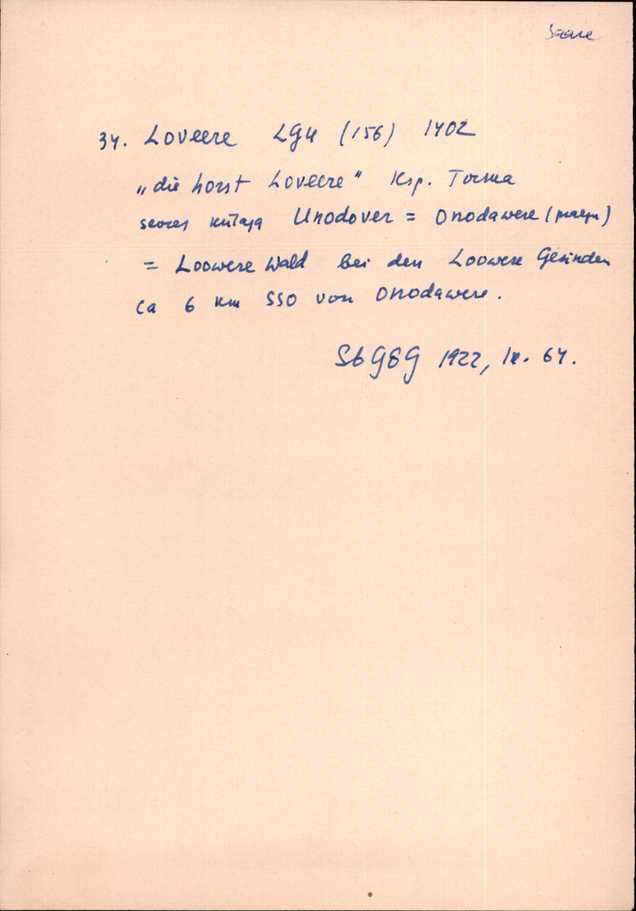 Saare
34. Loveere LGU (156) 1402
„die horst Loveere" Ksp. Torma
seoses külaga Unodover = Onodawere (praegu)
= Loowere Wald bei den Loowere Gesinden
ca 6 km SSO von Onodawere.
SbGEG 1922, lk. 64.